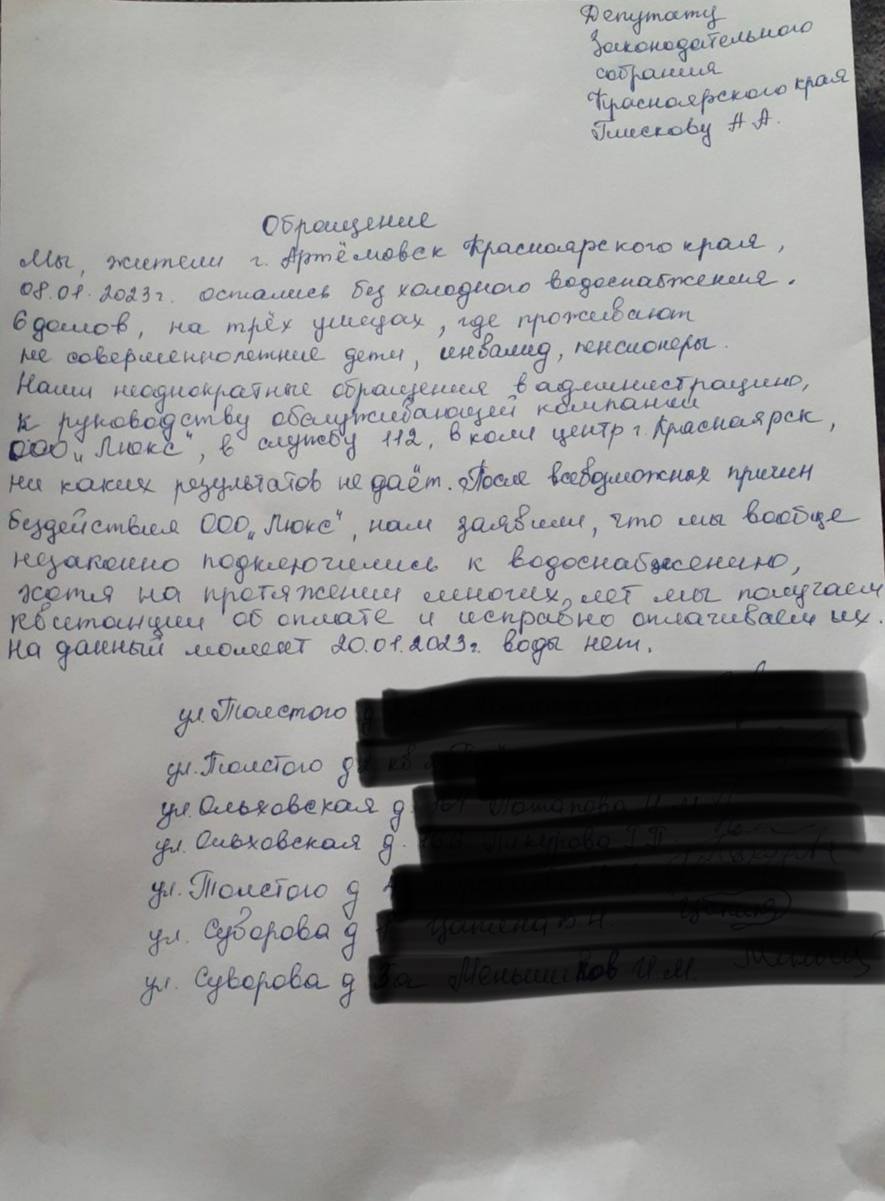 Депутату
Законодательного
собрания
Красноярского края
Глискову А А.
Обращение
Мы, жители г. Артёмовск Красноярского края,
08.01.2023г. остались без холодного водоснабжения.
6 домов, на трёх улицах, где проживают
не совершеннолетние дети, инвалид, пенсионеры.
Наши неоднократные обращения в администрацию,
к руководству обслуживающей компании
ООО „Люкс", в службу 112, в колл центр г. Красноярск,
ни каких результатов не даёт. После всевозможных причин
бездействия ООО „Люкс", нам заявили, что мы вообще
незаконно подключились к водоснабжению,
хотя на протяжении многих лет мы получаем
квитанции об оплате и исправно оплачиваем их.
На данный момент 20.01.2023г. воды нет.
ул. Толстого д
ул. Толстого д
ул. Ольховская д.
ул. Ольховская д.
ул. Толстого д
ул. Суворова д
ул. Суворова д